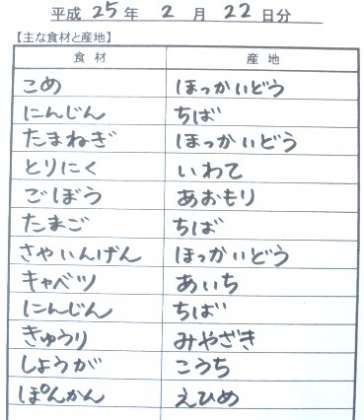 平成 25 年 2 月 22 日分
【主な食材と産地】
食材 産地
こめ ほっかいどう
にんじん ちば
たまねぎ ほっかいどう
とりにく いわて
ごぼう あおもり
たまご ちば
さやいんげん ほっかいどう
キャベツ あいち
にんじん ちば
きゅうり みやざき
しょうが こうち
ぽんかん えひめ